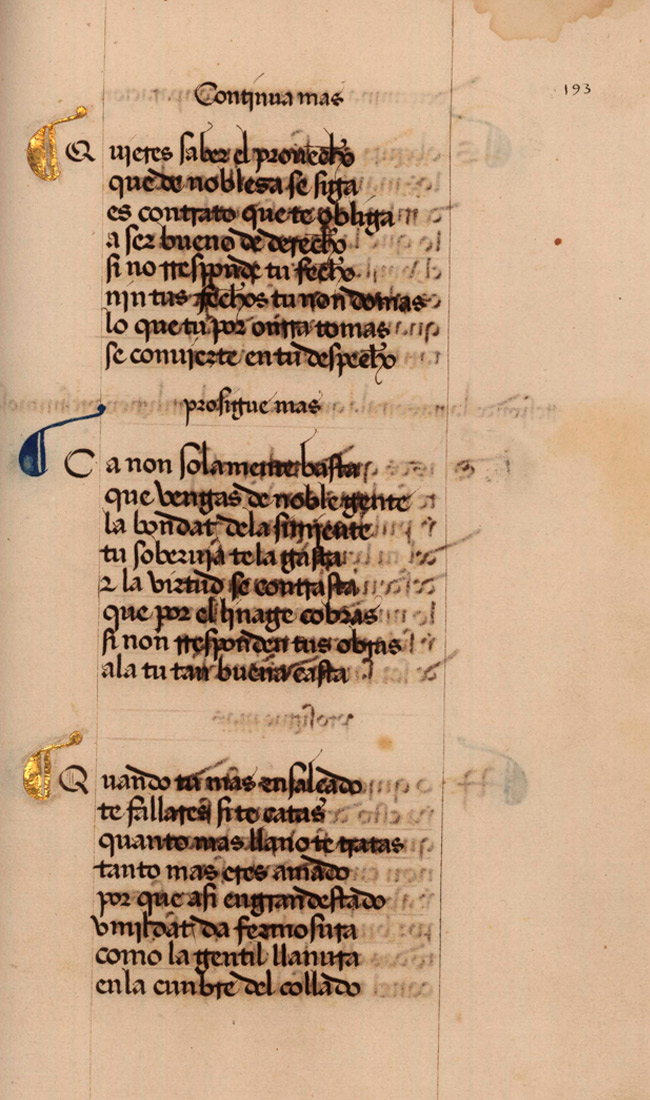 Continua mas
193
Quieres saber el prouecho
que de noblesa se siga
es contrato que te obliga
a ser bueno de derecho
si no rresponde tu fecho
nin tus fechos tu non domas
lo que tu por onrra tomas
se conuierte en tu despecho
prosigue mas
Ca non solamente basta
que vengas de noble gente
la bondat dela simiente
tu soberuia te la gasta
z la virtud se contrasta
que por el linage cobras
si non rresponden tus obras
ala tu tan buena casta
Quando tu mas ensalçado
te fallares si te catas
quanto mas llano te tratas
tanto mas eres amado
por que asi en grand estado
vmildat da fermosura
como la gentil llanura
en la cunbre del collado